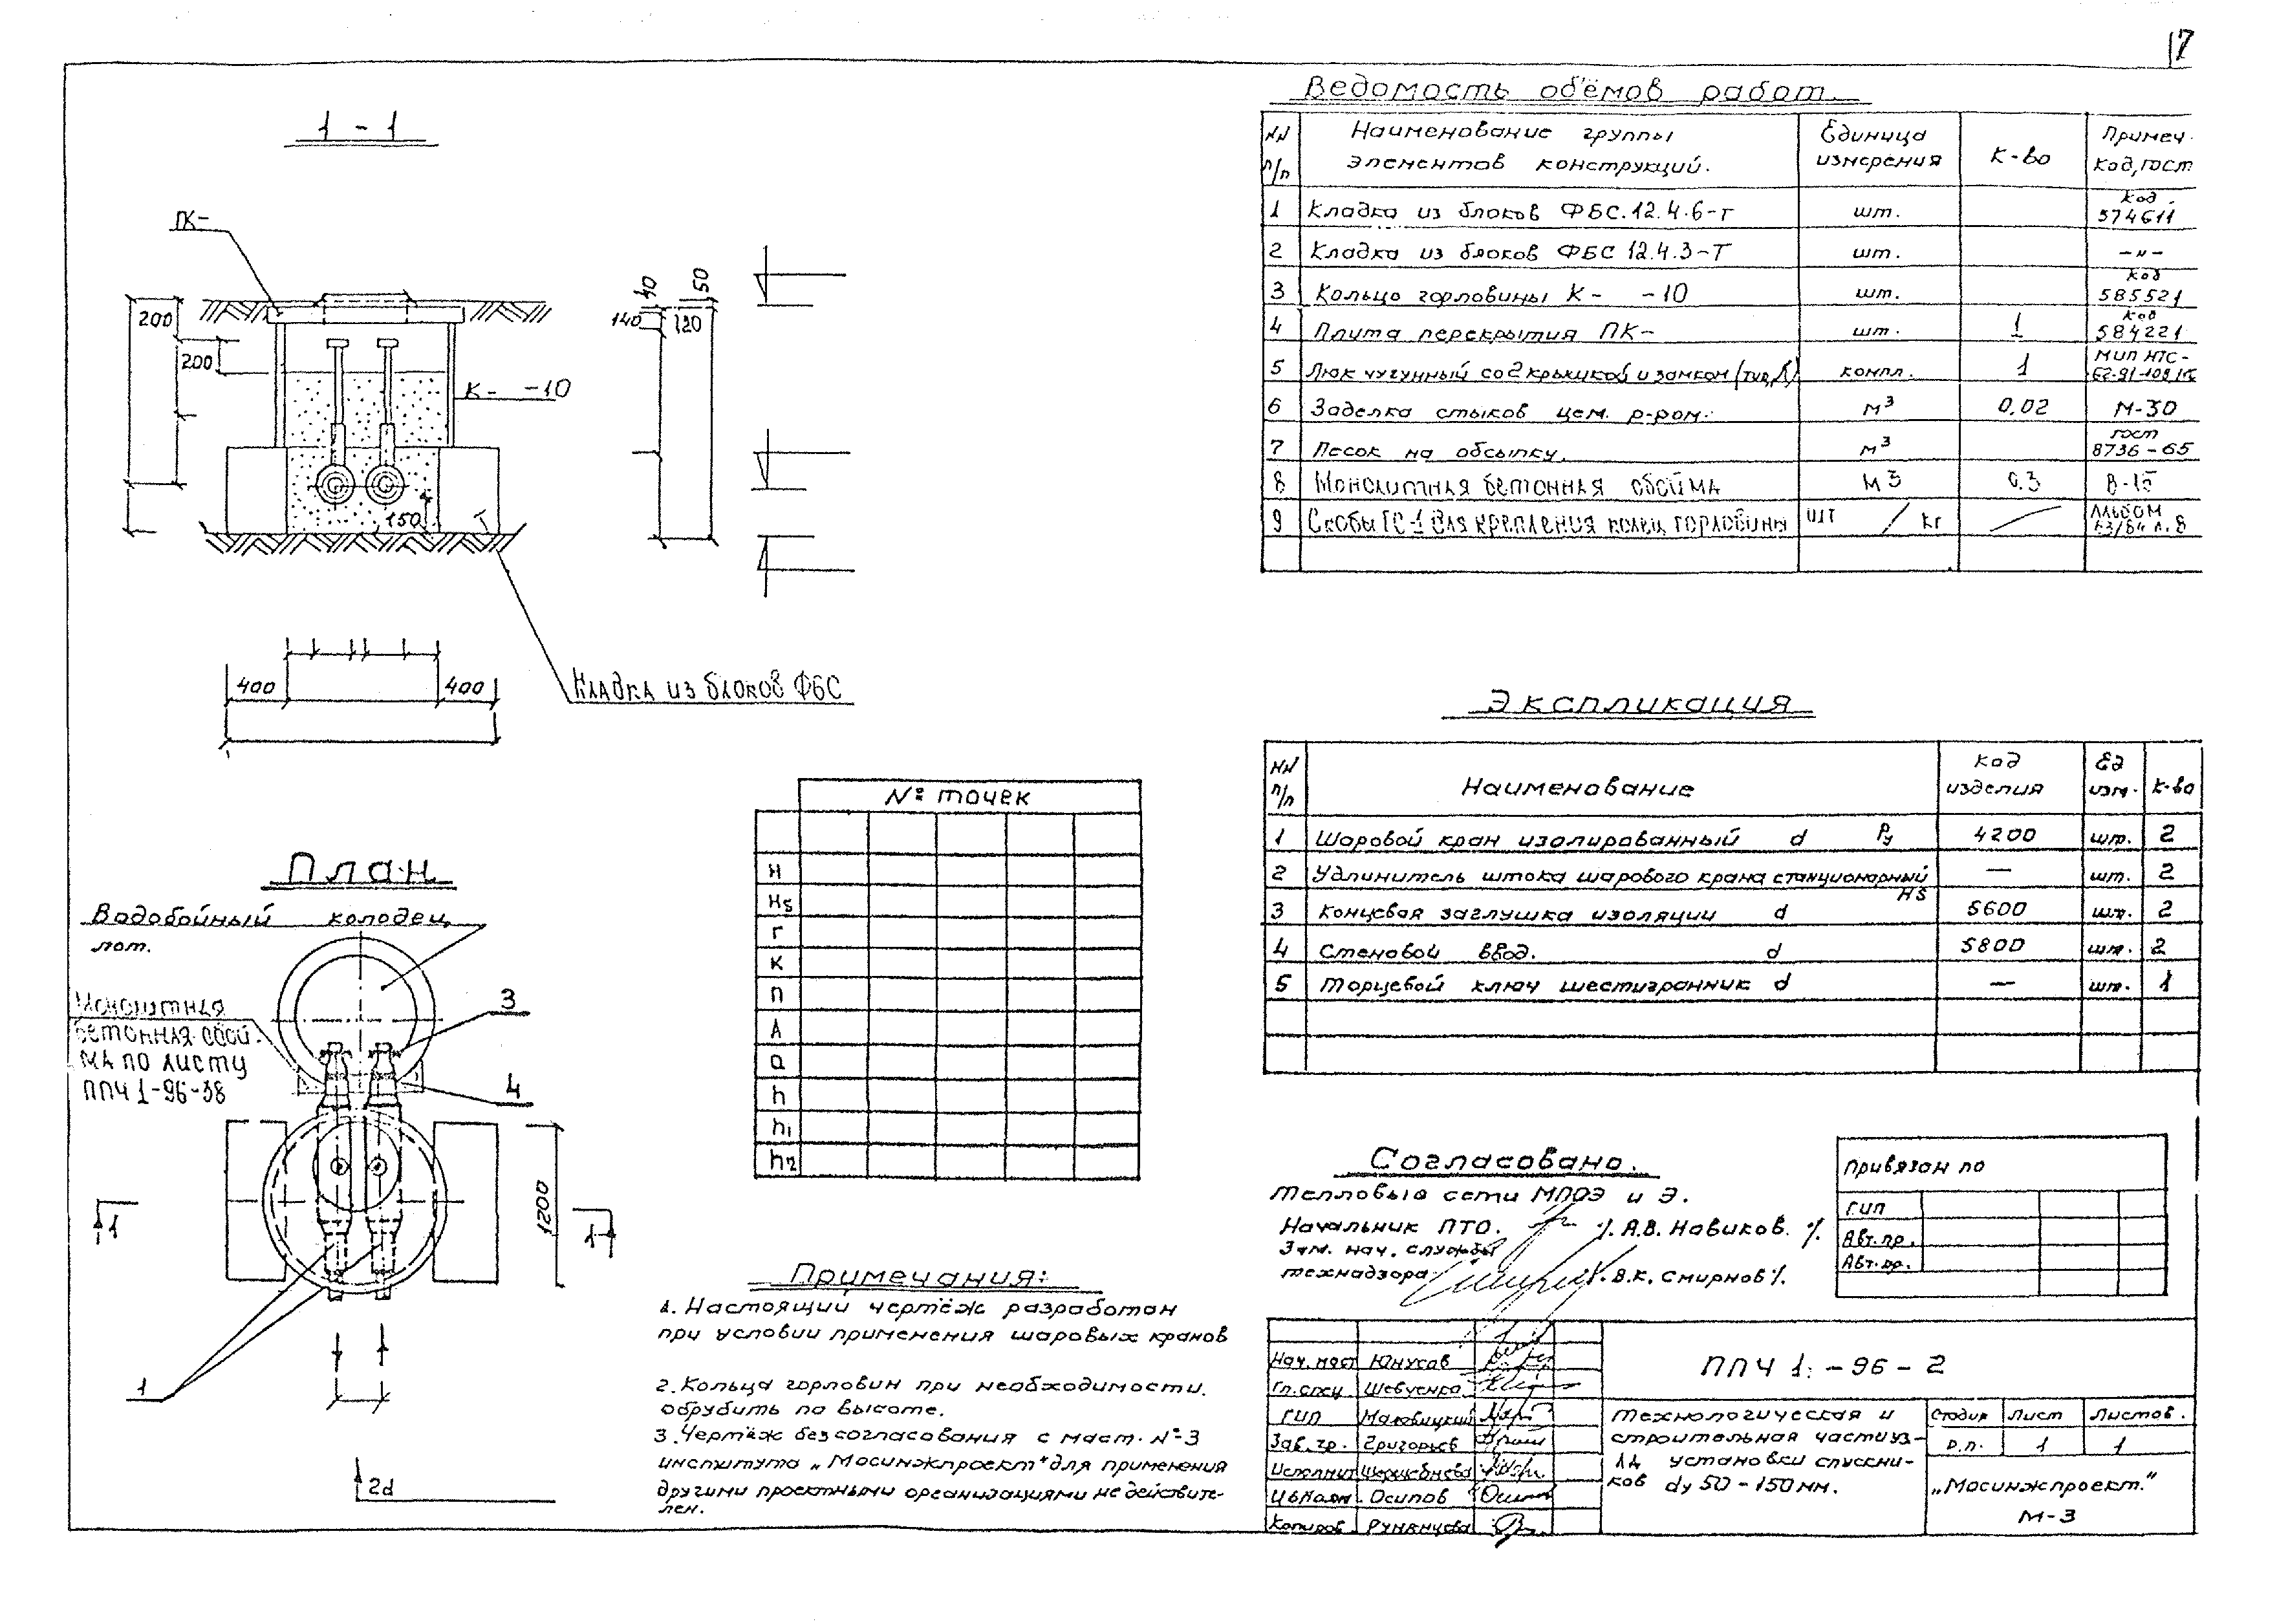 17
1 - 1
ПК-
200
200
К- -10
150
140
40
50
120
400
400
Кладка из блоков ФБС
План
Водобойный колодец,
лот.
Монолитная
бетонная обой-
ма по листу
ППЧ 1-96-38
3
4
1200
1
1
1
2d
№ точек
H
Hs
Г
К
П
А
а
h
h1
h2
Примечания:
1. Настоящий чертёж разработан
при условии применения шаровых кранов
2. Кольца горловин при необходимости.
обрубить по высоте.
3. Чертёж без согласования с маст. №-3
института „Мосинжпроект" для применения
другими проектными организациями не действите-
лен.
Ведомость объёмов работ.
NN п/п Наименование группы элементов конструкций. Единица измерения К-во Примеч. Код, гост
1 Кладка из блоков ФБС.12.4.6-т шт. Код 574611
2 Кладка из блоков ФБС 12.4.3-Т шт. -"-
3 Кольцо горловины К- -10 шт. Код 585521
4 Плита перекрытия ПК- шт. 1 Код 584221
5 Люк чугунный со 2 крышкой и замком (тип Л) компл. 1 МИП НТС-62-91-109
6 Заделка стыков цем. р-ром. м³ 0.02 М-30
7 Песок на обсыпку. м³ гост 8736-65
8 Монолитная бетонная обойма м3 0.3 В-15
9 Скобы ГС-1 для крепления колец горловины шт / кг Альбом л. 8
Экспликация
NN п/п Наименование Код изделия Ед изм. К-во
1 Шаровой кран изолированный d Ру 4200 шт. 2
2 Удлинитель штока шарового крана стационарный Hs — шт. 2
3 Концевая заглушка изоляции d 5600 шт. 2
4 Стеновой ввод. d 5800 шт. 2
5 Торцевой ключ шестигранник d — шт. 1
Согласовано.
Тепловые сети МПОЭ и Э.
Начальник ПТО. /. А.В. Новиков. /.
Зам. нач. службы
технадзора. /. В.К. Смирнов /.
Привязан по
ГИП
Авт. пр.
Авт. пр.
Нач. маст Юнусов
Гл. спец Шевченко
ГИП Маковицкий
Зав. гр. Григорьев
Исполнит
Осипов
Копиров Румянцева
ППЧ 1. -96 - 2
Технологическая и
строительная часть уз-
ла установки спускни-
ков dу 50 - 150 мм.
Стадия Лист Листов.
Р.П. 1 1
„Мосинжпроект."
М-3